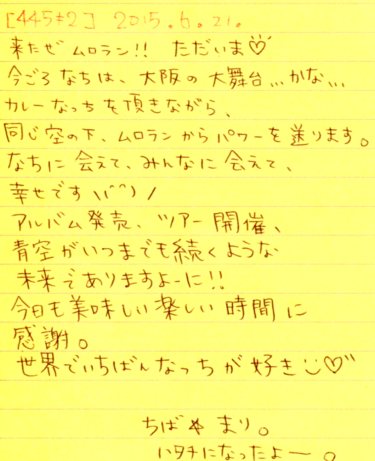 [445±2] 2015.6.21.
来たぜムロラン!! ただいま♡
今ごろなちは、大阪の大舞台...かな...
カレーなっちを頂きながら、
同じ空の下、ムロランからパワーを送ります。
なちに会えて、みんなに会えて、
幸せです\(^^)/
アルバム発売、ツアー開催、
青空がいつまでも続くような
未来でありますよーに!!
今日も美味しい楽しい時間に
感謝。
世界でいちばんなっちが好き♡
ちば☆まり。
ハタチになったよー。